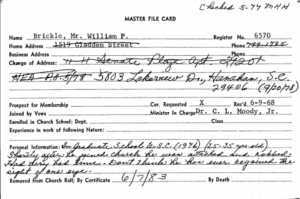 Checked 5-77 MNH
MASTER FILE CARD
Name Brickle, Mr. William P. Register No. 6570
Home Address 1519 Gladden Street Phone
Business Address Phone
Change of Address: Senate Plaza Apt.
5803 Lakeview Dr., Hanahan, S.C.
29406 (9/20/78)
Prospect for Membership Cor. Requested X Rec'd 6-9-68
Joined by Vows Minister in Charge Dr. C. L. Moody, Jr.
Enrolled in Church School: Dept. Class
Experience in work of following Nature:
Personal Information: In Graduate School U.S.C. (1976) (25-35 yr old)
Shortly after he joined church he was attacked and robbed.
Had very bad time. Don't think he has ever regained the
sight of one eye.
Removed from Church Roll: By Certificate 6/7/83 By Death